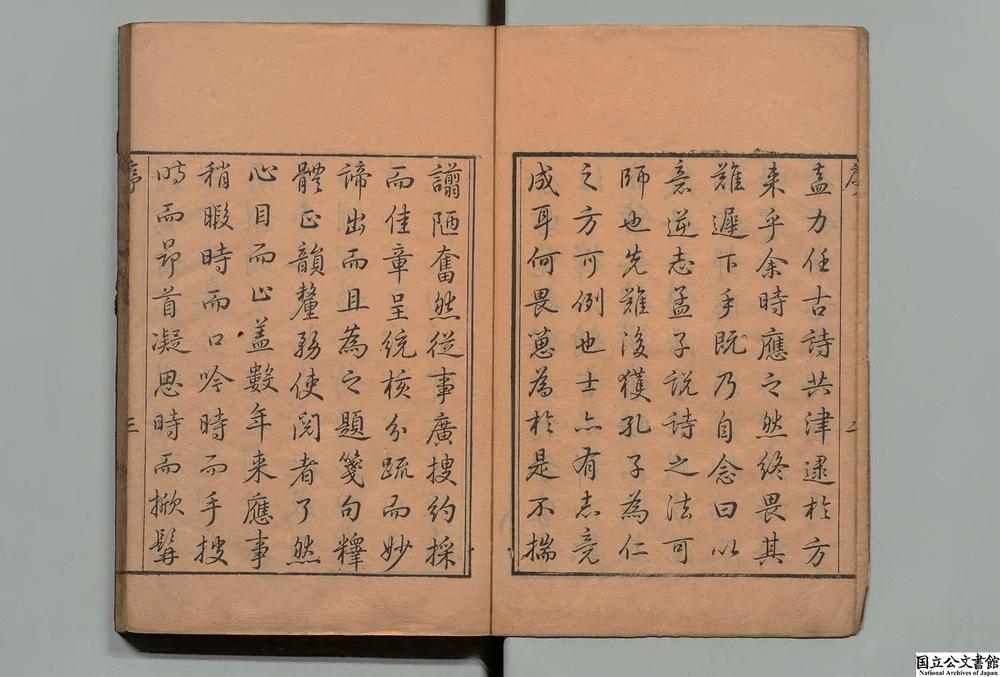 盍力任古詩共津逮於方
来乎余時應之然終畏其
難遲下手既乃自念曰以
意逆志孟子說詩之法可
師也先難後獲孔子為仁
之方可例也士亦有志竟
成耳何畏葸為於是不揣
譾陋奮然從事廣搜約採
而佳章呈統核分疏而妙
諦出而且為之題箋句釋
體正韻釐務使閱者了然
心目而止蓋數年来應事
稍暇時而口吟時而手搜
時而昂首凝思時而掀髯
序
二
序
三
国立公文書館
National Archives of Japan